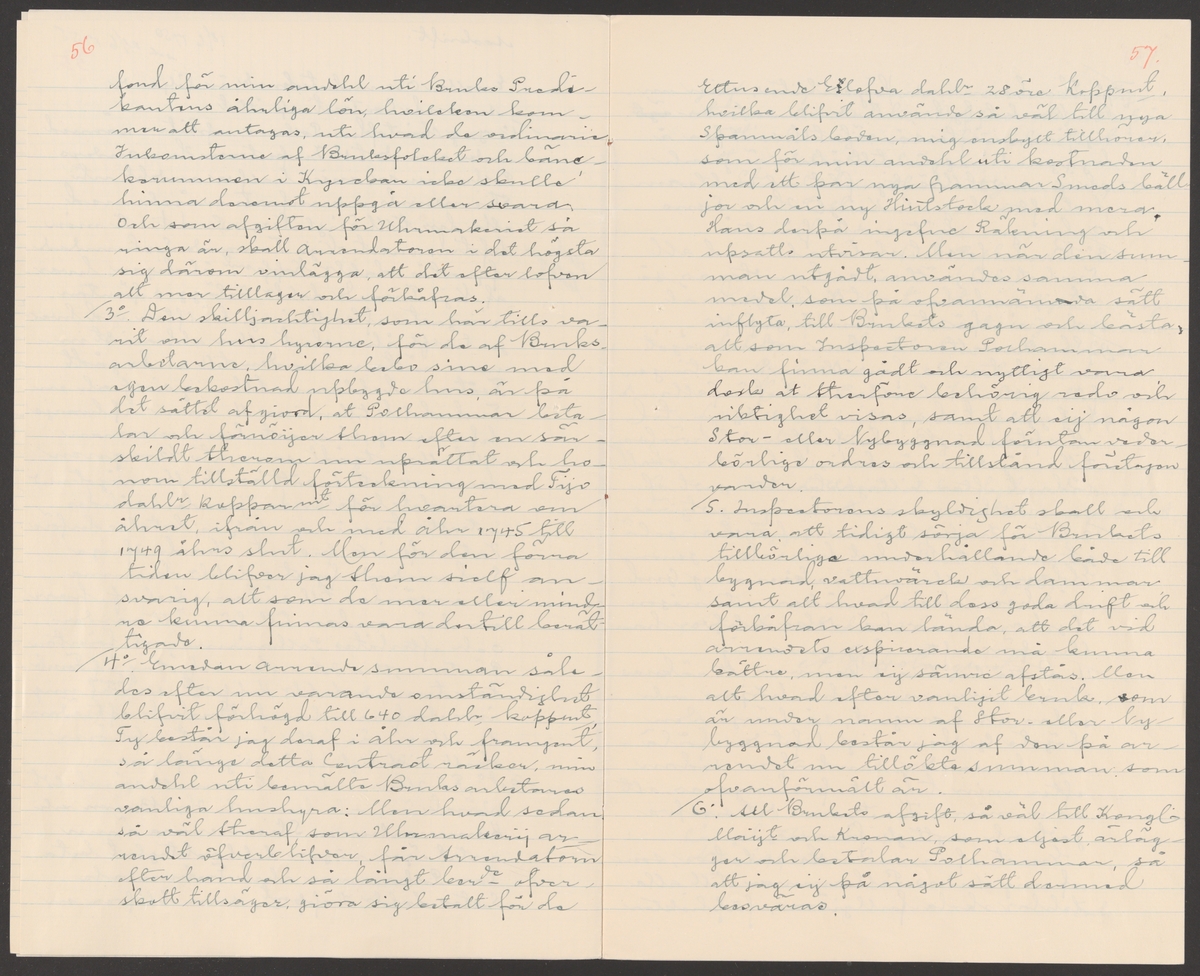 56
fond för min andehl uti Bruks Predi-
kantens åhrliga lön, hwilcken kom-
mer att antagas, uti hvad de ordinarie
Inkomsterne af Bruksfolcket och bänc-
kerummen i Kyrckan icke skulle
hinna deremot uppgå eller svara.
Och som afgiften för Uhrmakeriet så
ringa är, skall Arrendatoren i det högsta
sig därom vinlägga, att det efter lofven
alt mer tilltager och förkåfras.
3o. Den skilljachtighet, som här tills va-
rit om hushyrerne, för de af Bruks-
arbetarne, hvilka bebo sine med
egen bekostnad upbygde hus, är på
det sättet afgiord, at Polhammar beta-
lar och förnöijer them efter en sär-
skildt therom nu uprättat och ho-
nom tillställd förteckning med Tijo
dahlr kopparmt för hvartera om
åhret, ifrån och med åhr 1745 till
1749 åhrs slut. Men för den förra
tiden blifver jag them sielf an-
svarig, alt som de mer eller mind-
re kunna finnas vara dertill berät-
tigade.
4o Emedan arrende summan såle-
des efter nu varande omständighet
blifvit förhögd till 640 dahlr koppmt,
Ty består jag deraf i åhr och framgent,
så länge detta Contract räcker, min
andehl uti bemälte Bruks arbetares
vanliga hushyra: Men hvad sedan
så väl theraf som Uhrmakerij ar
rendet öfverblifver, får Arrendatorn
efter hand och så långt berde öfver-
skott tillsäger, giöra sig betalt för de
57.
Ettusende Ellofva dahlr 28 öre Koppmt,
hvilka blifvit använde så väl till nya
Spanmåls boden, mig enskylt tillhörer,
som för min andehl uti kostnaden
med ett par nya frammar Smeds bäll
jor och en ny Hiulstock med mera.
Hans derpå ingefne Räkning och
upsatts utvisar. Men när den sum-
man utgådt, användes samma
medel, som på ofvannämnda sätt
inflyta, till Brukets gagn och bästa,
alt som Inspectoren Polhammar
kan finna gådt och nyttigt vara
dock at therföre behörig redo och
riktighet visas, samt att eij någon
Stor- eller Nybyggnad förutan veder-
börlige ordres och tillstånd företagen
varder.
5. Inspectorens skyldighet skall och
vara, att tidigt sörja för Brukets
tillbörlige underhållande både till
bygnad, vattuwärck och dammar
samt alt hvad till dess goda drift och
förkåfran kan lända, att det vid
arrendets expirerande må kunna
bättre, men eij sämre afstås. Men
alt hvad efter vanligit bruk, som
är under namn af Stor- eller Ny-
byggnad består jag af den på ar-
rendet nu tillökte summan, som
ofvanförmält är.
6: All Brukets afgift, så väl till Kongl.
Maijt och Kronan, som eljest, ärläg-
ger och betalar Polhammar, så
att jag eij på något sätt dermed
besväras.